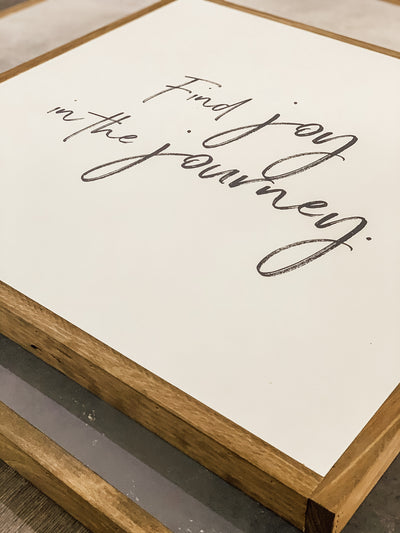 Find joy
in the journey.